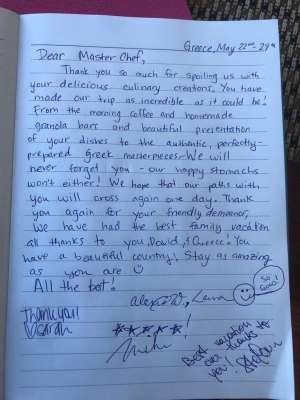 Greece, May 22nd - 29th
Dear Master Chef,
Thank you so much for spoiling us with
your delicious culinary creations. You have
made our trip as incredible as it could be!
From the morning coffee and homemade
granola bars and beautiful presentation
of your dishes to the authentic, perfectly-
prepared Greek masterpieces - We will
never forget you - our happy stomachs
won't either! We hope that our paths with
you will cross again one day. Thank
you again for your friendly demeanor,
We have had the best family vacation
all thanks to you, David, & Greece! You
have a beautiful country! Stay as amazing
as you are
All the best!
So Good!
Thank you!
Sarah
Best vacation
ever thanks to
you!